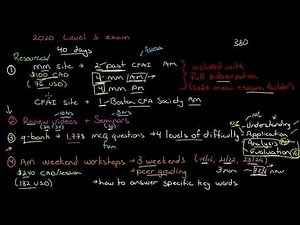 2020 Level 3 exam
380
40 days
Resources/
① mm site → 2-past CFAI AM
$100 CAD
(75 USD)
4-mm AM
4-mm PM
included with
full subscription
(Left menu → exam Builder)
CFAI site → 1-Boston CFA Society AM
② Review videos + Seminars
③ q-bank → 1,775 mcq questions → 4 levels of difficulty
Understanding
Application
Analysis
Evaluation
④ AM weekend workshops → 3 weekends
$240 CAD/session
(182 USD)
→ peer grading
→ how to answer specific key words